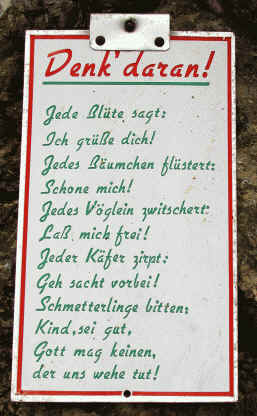 Denk'daran!
Jede Blüte sagt:
Ich grüße dich!
Jedes Bäumchen flüstert:
Schone mich!
Jedes Vöglein zwitschert:
Laß mich frei!
Jeder Käfer zirpt:
Geh sacht vorbei!
Schmetterlinge bitten;
Kind, sei gut,
Gott mag keinen,
der uns wehe tut!